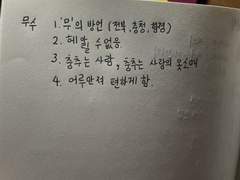 무수 1. '무'의 방언 (전북, 충청, 함경)
2. 헤알릴 수 없음.
3. 춤추는 사람, 춤추는 사람의 옷소매
4. 어루만져 편하게 함.